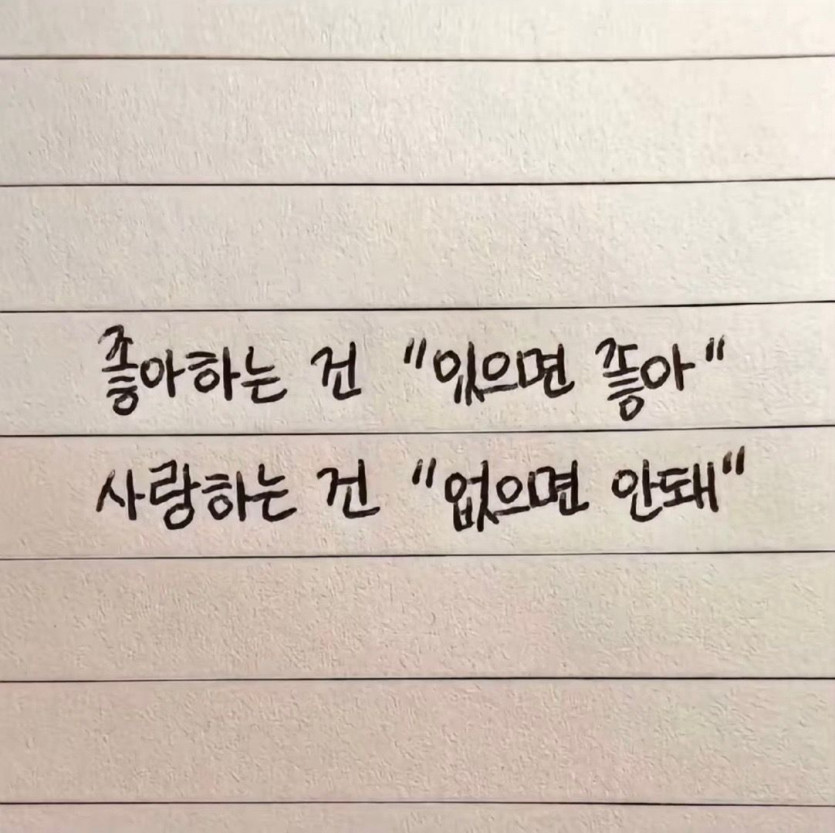 좋아하는 건 "있으면 좋아"
사랑하는 건 "없으면 안돼"